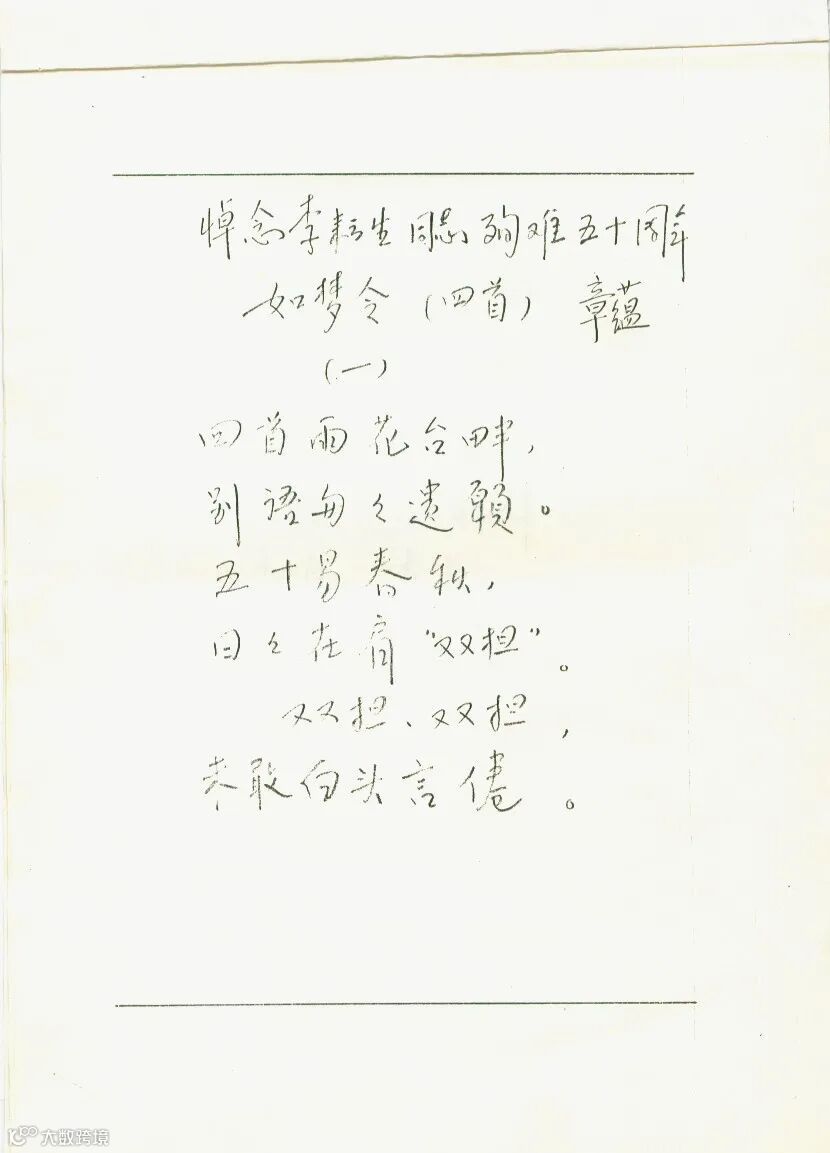 悼念李耘生同志殉难五十周年
如梦令（四首） 章蕴
（一）
回首雨花台畔，
别语匆々遗愿。
五十易春秋，
日々在肩“双担”。
双担、双担，
未敢白头言倦。
大数跨境